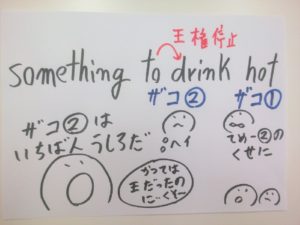 王権停止
something to drink hot
ザコ② ザコ①
ザコ②は
いちばんうしろだ
ヘイ
てめー②の
くせに
かつては
王だったの
に…くそー